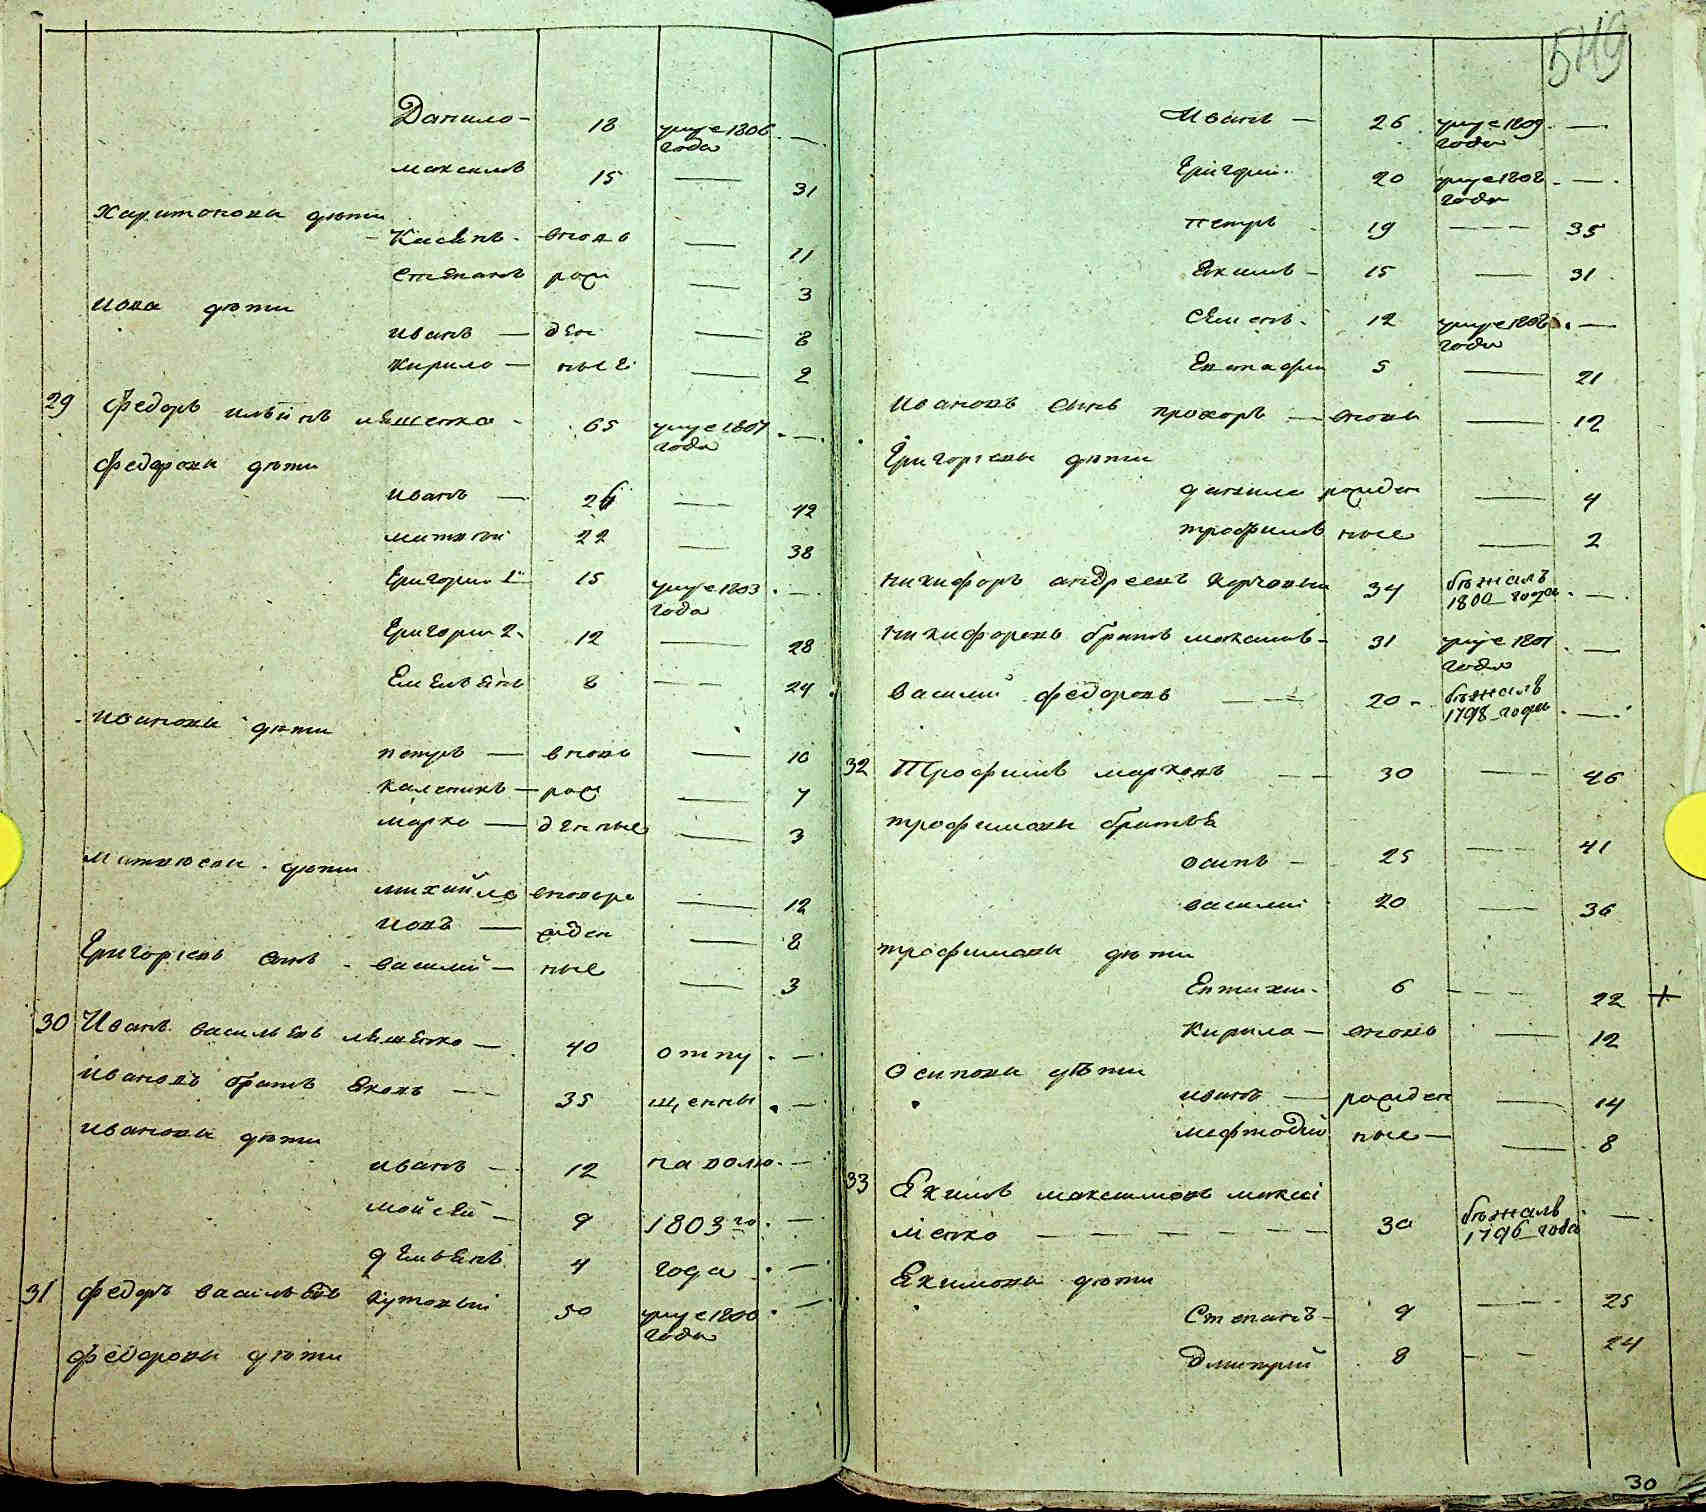 Данило — 18 умре 1806 года —
Максимъ 15 — 31
Харитоновы дѣти
Касянъ вновь — 11
Степанъ рож — 3
Иова дѣти
Иванъ — ден — 8
Кирило — ные — 2
29 Федоръ Ильинъ Ляшенко 65 умре 1807 года —
Федоровы дѣти
Иванъ — 26 — 42
Матвей 22 — 38
Григорий 1й 15 умре 1803 года —
Григорий 2. 12 — 28
Емельянъ 8 — 24
Ивановы дѣти
Петръ — вновь — 10
Каленикъ — рож — 7
Марко — денные — 3
Матвеевы дѣти
Михайло вновь ро — 12
Иовъ — жден — 8
Григорьевъ сынъ Василий — ные — 3
30 Иванъ Васильевъ Ляшенко — 40 отпу —
Ивановъ братъ Яковъ — 35 щенны —
Ивановы дѣти
Иванъ — 12 на волю —
Мойсей — 9 1803го —
Демьянъ 4 года —
31 Федоръ Васильевъ Кутовый 50 умре 1800 года —
Федоровы дѣти
549
Иванъ — 26 умре 1809 года —
Григорий 20 умре 1808 года —
Петръ 19 — 35
Екимъ — 15 — 31
Семенъ 12 умре 1806 года —
Евстафий 5 — 21
Ивановъ сынъ Прохоръ — вновь — 12
Григорьевы дѣти
Данило рожден — 4
Трофимъ ные — 2
Никифоръ Андреевъ 34 бѣжалъ 1800 года —
Никифоровъ братъ Максимъ — 31 умре 1801 года —
Василий Федоровъ — 20 бѣжалъ 1798 года —
32 Трофимъ Марковъ — 30 — 46
Трофимовы братья
Осипъ — 25 — 41
Василий 20 — 36
Трофимовы дѣти
Евтихий 6 — 22 +
Кирило — вновь — 12
Осиповы дѣти
Иванъ — рожден — 14
Мефтодий ные — 8
33 Якимъ Максимовъ Макси
менко — 30 бѣжалъ 1796 года —
Якимовы дѣти
Степанъ — 9 — 25
Дмитрий 8 — 24
30